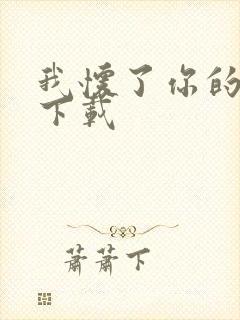 我懷了你的
下載
蕭蕭下